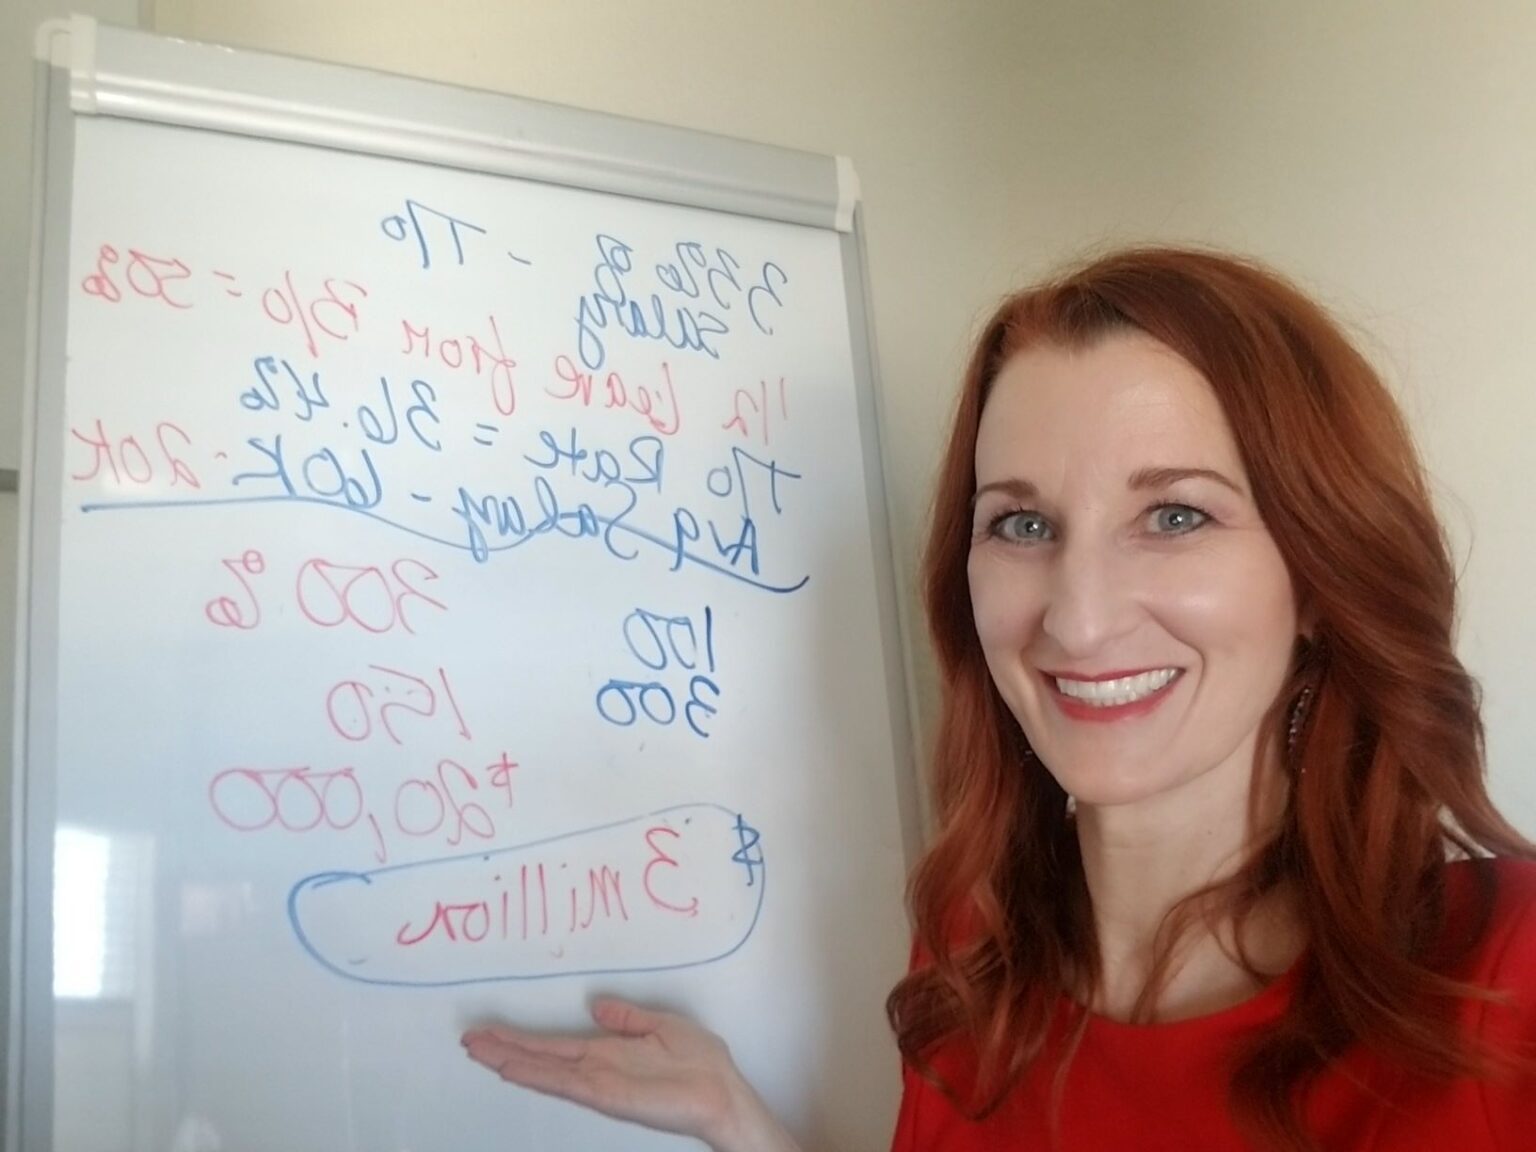 33% of Salary - T/O
1/2 leave from B/O = 50%
T/O Rate = 36.4%
Avg Salary - 60K - 20K
100 300%
300 150
$20,000
$3 million